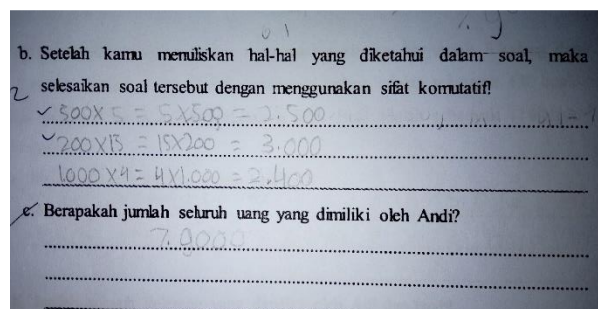 b. Setelah kamu menuliskan hal-hal yang diketahui dalam soal, maka
selesaikan soal tersebut dengan menggunakan sifat komutatif!
2
500X5 = 5X500 = 2.500
200X15 = 15X200 = 3.000
1.000X4 = 4X1.000 = 2.400
c. Berapakah jumlah seluruh uang yang dimiliki oleh Andi?
7.9000